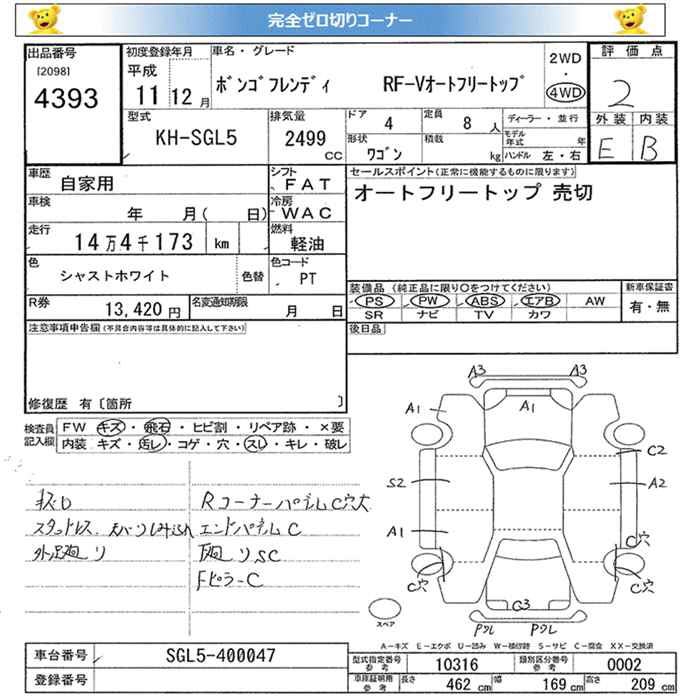 完全ゼロ切りコーナー
出品番号
[2098]
4393
初度登録年月
平成
11 12 月
車名・グレード
ボンゴフレンディ RF-Vオートフリートップ
2WD
・
4WD
評価点
2
外装 内装
E B
型式
KH-SGL5
排気量
2499
CC
ドア
4
定員
8 人
形状
ワゴン
積載
kg
ディーラー・並行
モデル
年式 年
ハンドル 左・右
車歴
自家用
シフト
FAT
車検
年 月( 日)
冷房
WAC
走行
14万4千173 km
燃料
軽油
色
シャストホワイト
色替
色コード
PT
R券
13,420 円
名変通知期限
月 日
セールスポイント(正常に機能するものに限ります)
オートフリートップ 売切
装備品 (純正品に限り○をつけてください)
PS PW ABS エアB AW
SR ナビ TV カワ
新車保証書
有・無
後日品
注意事項申告欄(不具合内容等は具体的に記入して下さい)
修復歴 有〔箇所 〕
検査員
記入欄
FW キズ・飛石・ヒビ割・リペア跡・×要
内装 キズ・汚レ・コゲ・穴・スレ・キレ・破レ
キズ
スタットレス
Rコーナーパネル C穴大
エンドパネル C
下廻リ SC
Fピラー C
A3 A3
A1 A1
C2
S2 A2
A1
C穴
C穴 C穴
C3
スペア
Pワレ Pワレ
A-キズ E-エクボ U-凹み W-補修跡 S-サビ C-腐食 XX-交換済
車台番号
SGL5-400047
登録番号
型式指定番号
参考
10316
類別区分番号
参考
0002
車庫証明用
参考
長さ
462 cm
幅
169 cm
高さ
209 cm